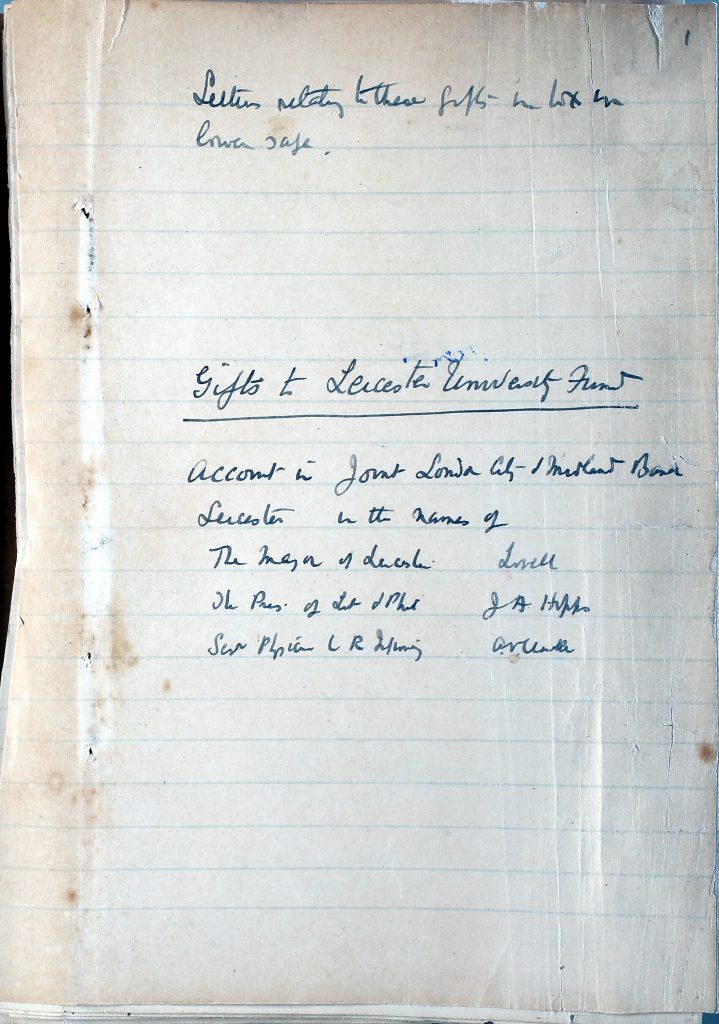 1
Letters relating to these gifts in box in
lower safe.
Gifts to Leicester University Fund
Account in Joint London City & Midland Bank
Leicester in the names of
The Mayor of Leicester Lovell
The Pres. of Lit & Phil J A Hopps
Senr Physician L R Infirmary